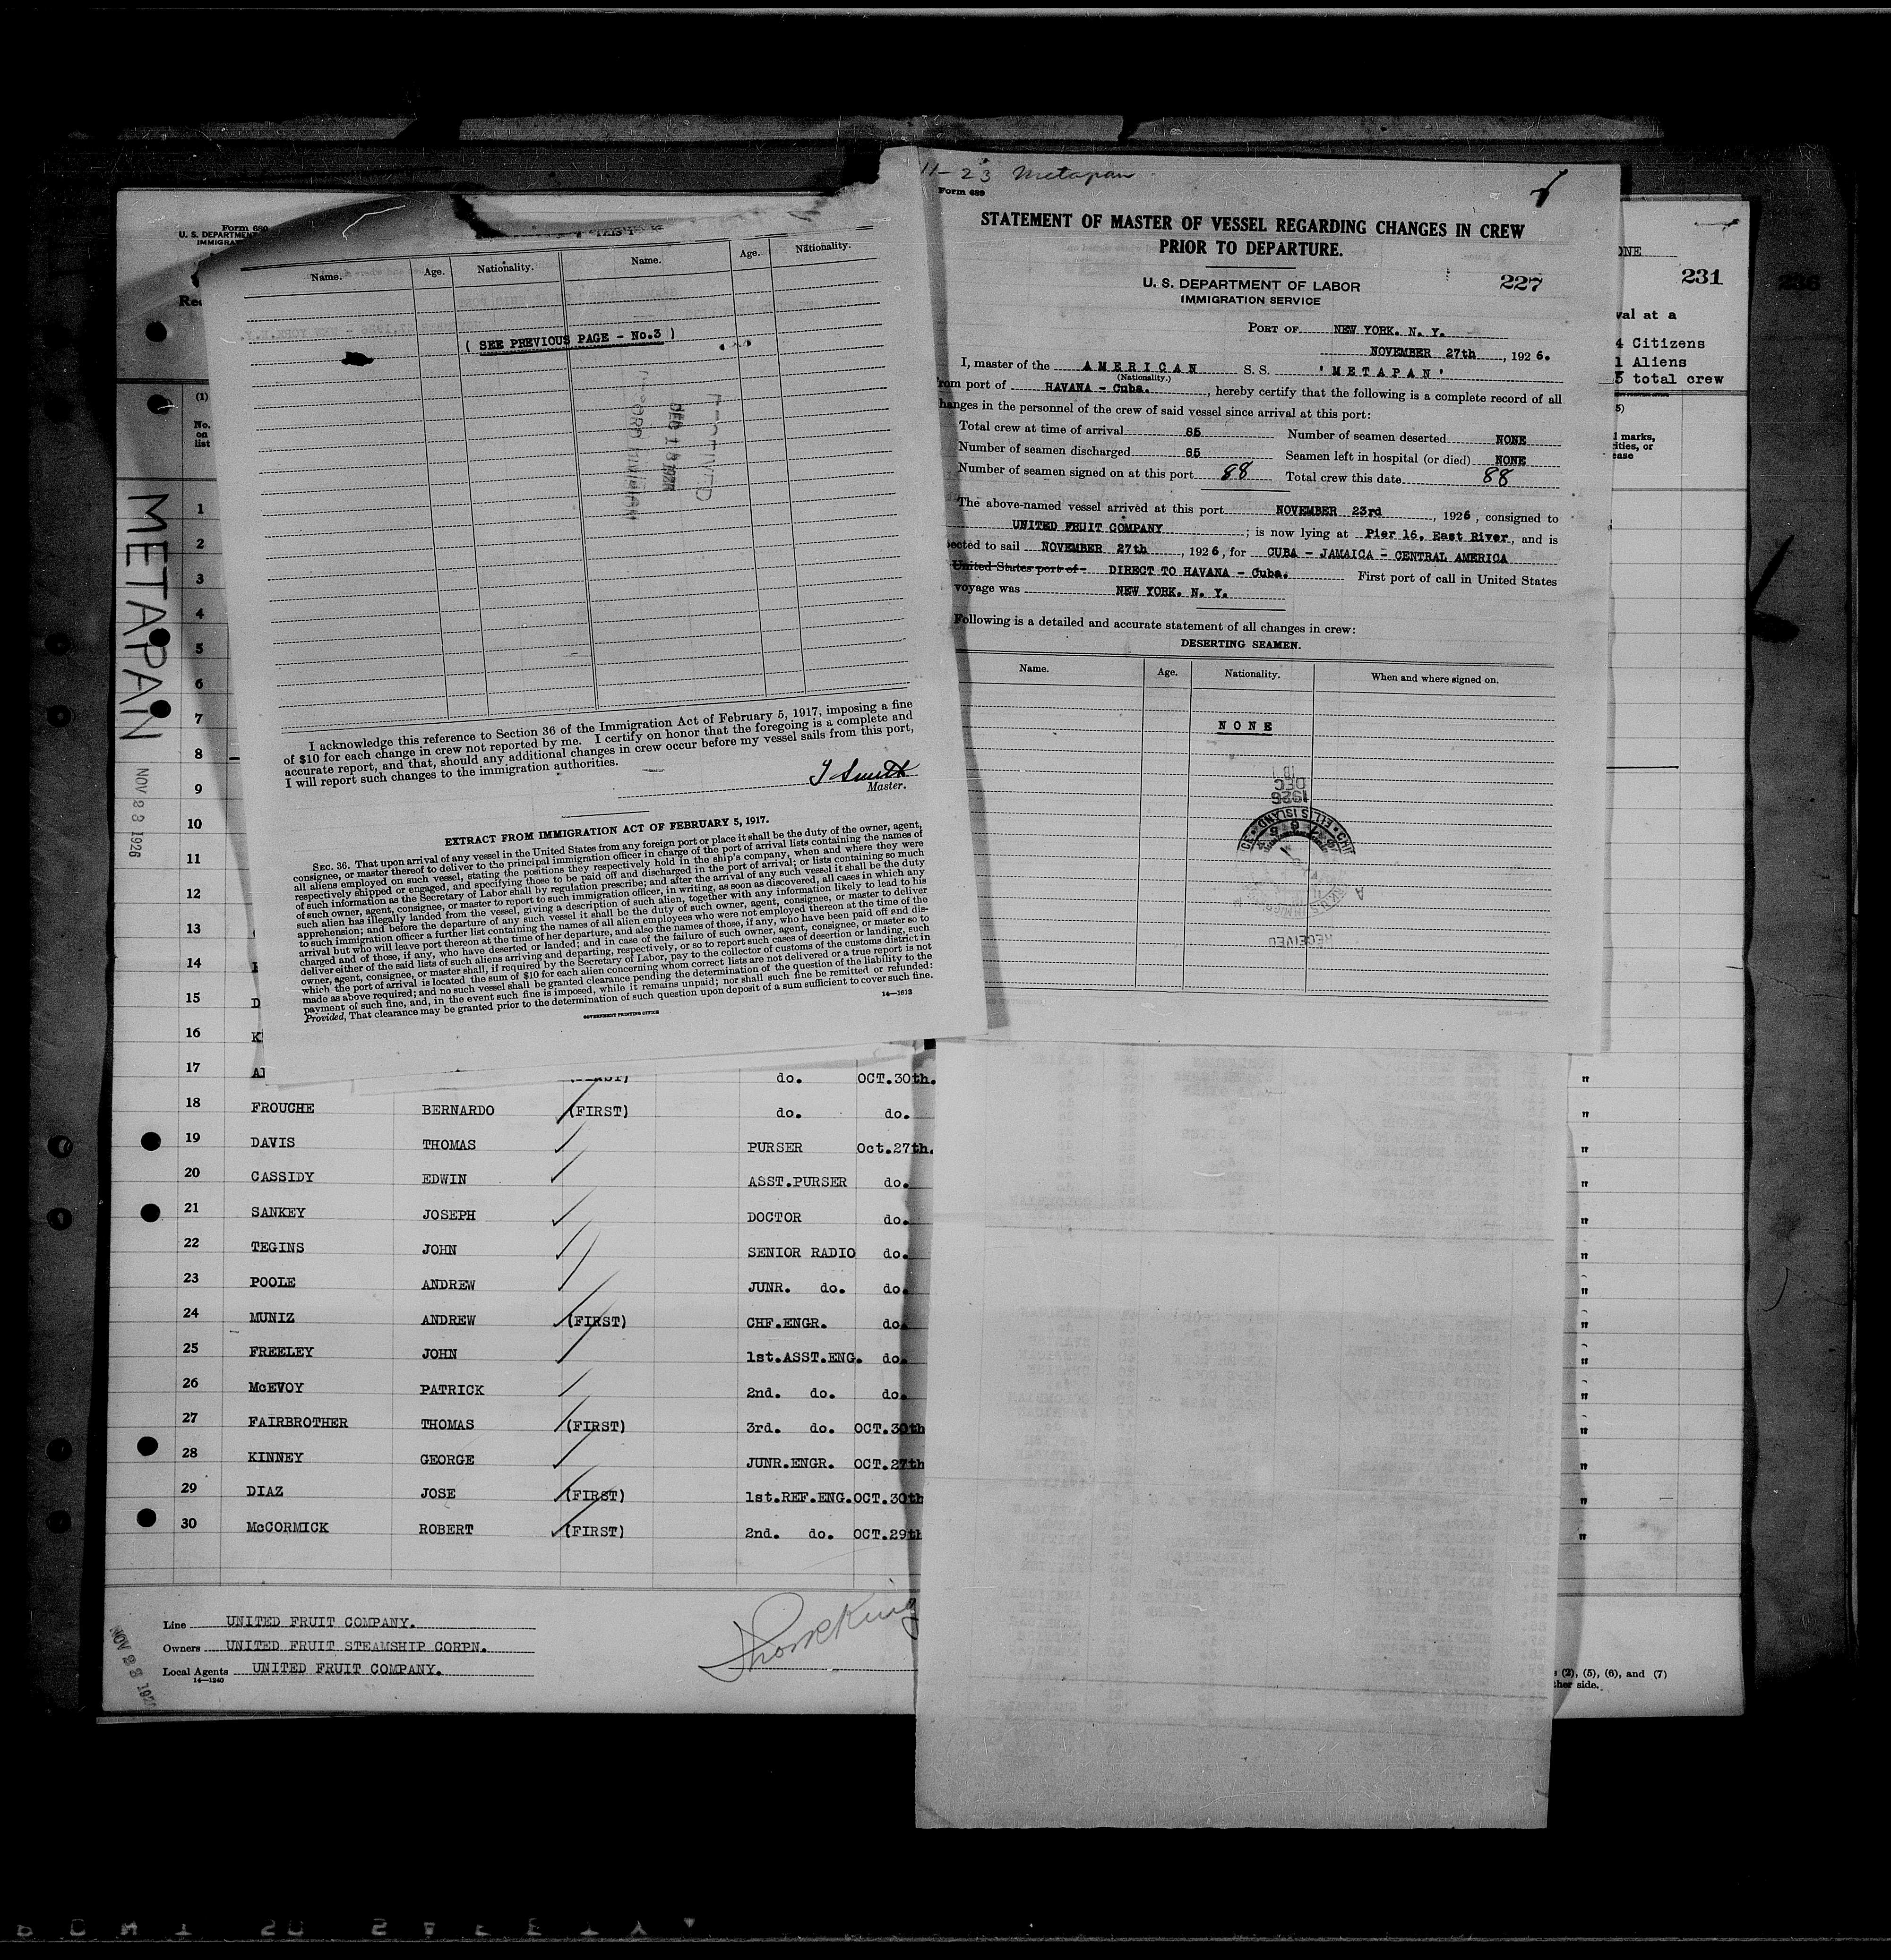 11-23 Metapan
Form 689
STATEMENT OF MASTER OF VESSEL REGARDING CHANGES IN CREW
PRIOR TO DEPARTURE.
U. S. DEPARTMENT OF LABOR
IMMIGRATION SERVICE
227
PORT OF NEW YORK. N. Y.
NOVEMBER 27th, 1926.
I, master of the AMERICAN S. S. 'METAPAN'
(Nationality.)
from port of HAVANA - Cuba., hereby certify that the following is a complete record of all
changes in the personnel of the crew of said vessel since arrival at this port:
Total crew at time of arrival 85 Number of seamen deserted NONE
Number of seamen discharged 85 Seamen left in hospital (or died) NONE
Number of seamen signed on at this port 88 Total crew this date 88
The above-named vessel arrived at this port NOVEMBER 23rd, 1926, consigned to
UNITED FRUIT COMPANY; is now lying at Pier 16, East River, and is
ected to sail NOVEMBER 27th, 1926, for CUBA - JAMAICA - CENTRAL AMERICA
United States port of - DIRECT TO HAVANA - Cuba. First port of call in United States
voyage was NEW YORK. N. Y.
Following is a detailed and accurate statement of all changes in crew:
DESERTING SEAMEN.
Name. Age. Nationality. When and where signed on.
NONE
1926
DEC
ELLIS ISLAND
RECEIVED
Name. Age. Nationality. Name. Age. Nationality.
( SEE PREVIOUS PAGE - No.3 )
I acknowledge this reference to Section 36 of the Immigration Act of February 5, 1917, imposing a fine
of $10 for each change in crew not reported by me. I certify on honor that the foregoing is a complete and
accurate report, and that, should any additional changes in crew occur before my vessel sails from this port,
I will report such changes to the immigration authorities.
Master.
EXTRACT FROM IMMIGRATION ACT OF FEBRUARY 5, 1917.
SEC. 36. That upon arrival of any vessel in the United States from any foreign port or place it shall be the duty of the owner, agent,
consignee, or master thereof to deliver to the principal immigration officer in charge of the port of arrival lists containing the names of
all aliens employed on such vessel, stating the positions they respectively hold in the ship's company, when and where they were
respectively shipped or engaged, and specifying those to be paid off and discharged in the port of arrival; or lists containing so much
of such information as the Secretary of Labor shall by regulation prescribe; and after the arrival of any such vessel it shall be the duty
of such owner, agent, consignee, or master to report to such immigration officer, in writing, as soon as discovered, all cases in which any
such alien has illegally landed from the vessel, giving a description of such alien, together with any information likely to lead to his
apprehension; and before the departure of any such vessel it shall be the duty of such owner, agent, consignee, or master to deliver
to such immigration officer a further list containing the names of all alien employees who were not employed thereon at the time of the
arrival but who will leave port thereon at the time of her departure, and also the names of those, if any, who have been paid off and dis-
charged and of those, if any, who have deserted or landed; and in case of the failure of such owner, agent, consignee, or master so to
deliver either of the said lists of such aliens arriving and departing, respectively, or so to report such cases of desertion or landing, such
owner, agent, consignee, or master shall, if required by the Secretary of Labor, pay to the collector of customs of the customs district in
which the port of arrival is located the sum of $10 for each alien concerning whom correct lists are not delivered or a true report is not
made as above required; and no such vessel shall be granted clearance pending the determination of the question of the liability to the
payment of such fine, and, in the event such fine is imposed, while it remains unpaid; nor shall such fine be remitted or refunded:
Provided, That clearance may be granted prior to the determination of such question upon deposit of a sum sufficient to cover such fine.
14—1613
GOVERNMENT PRINTING OFFICE
Form 689
U. S. DEPARTMENT
IMMIGRAT
(1)
No. on list
METAPAN
NOV 23 1926
231
val at a
4 Citizens
1 Aliens
5 total crew
marks,
1
2
3
4
5
6
7
8
9
10
11
12
13
14
15 D
16 K
17 do. OCT.30th.
18 FROUCHE BERNARDO (FIRST) do. do. "
19 DAVIS THOMAS PURSER Oct.27th. "
20 CASSIDY EDWIN ASST.PURSER do. "
21 SANKEY JOSEPH DOCTOR do. "
22 TEGINS JOHN SENIOR RADIO do. "
23 POOLE ANDREW JUNR. do. do. "
24 MUNIZ ANDREW (FIRST) CHF.ENGR. do. "
25 FREELEY JOHN 1st.ASST.ENG. do. "
26 McEVOY PATRICK 2nd. do. do. "
27 FAIRBROTHER THOMAS (FIRST) 3rd. do. OCT.30th "
28 KINNEY GEORGE JUNR.ENGR. OCT.27th "
29 DIAZ JOSE (FIRST) 1st.REF.ENG. OCT.30th "
30 McCORMICK ROBERT (FIRST) 2nd. do. OCT.29th "
Line UNITED FRUIT COMPANY.
Owners UNITED FRUIT STEAMSHIP CORPN.
Local Agents UNITED FRUIT COMPANY.
14—1240
(2), (5), (6), and (7)
ther side.